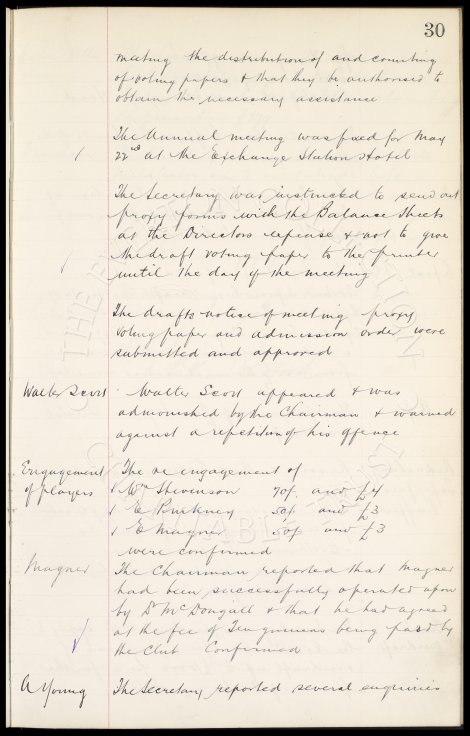 30
meeting the distribution of and counting
of voting papers & that they be authorised to
obtain the necessary assistance
The Annual meeting was fixed for May
22nd at the Exchange Station Hotel
The Secretary was instructed to send out
proxy forms with the Balance Sheets
at the Directors expense & not to give
the draft voting paper to the printer
until the day of the meeting
The drafts notice of meeting proxy
voting paper and admission order were
submitted and approved
Walter Scott
Walter Scott appeared & was
admonished by the Chairman & warned
against a repetition of his offence
Engagement
of players
The re engagement of
Wm Stevenson 70/- and £4
E Pinkney 50/- and £3
E Magner 50/- and £3
were confirmed
Magner
The Chairman reported that Magner
had been successfully operated upon
by Dr McDougall & that he had agreed
at the fee of Ten guineas being paid by
the Club Confirmed
A Young
The Secretary reported several enquiries